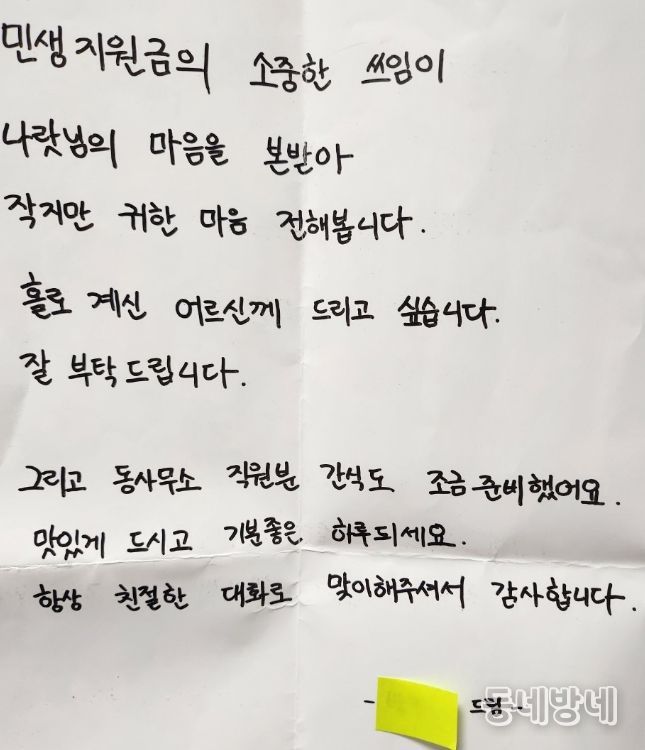 민생지원금의 소중한 쓰임이
나랏님의 마음을 본받아
작지만 귀한 마음 전해봅니다.
홀로 계신 어르신께 드리고 싶습니다.
잘 부탁드립니다.
그리고 동사무소 직원분 간식도 조금 준비했어요.
맛있게 드시고 기분좋은 하루되세요.
항상 친절한 대화로 맞이해주셔서 감사합니다.
- 드림 -
동네방네